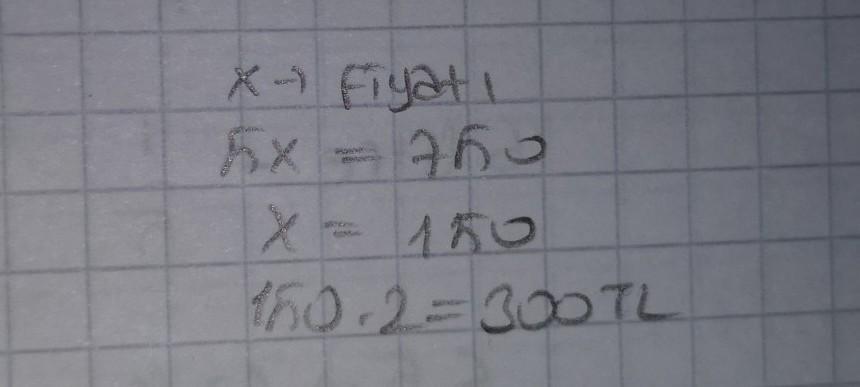 x → Fiyatı
5x = 750
x = 150
150.2 = 300 TL